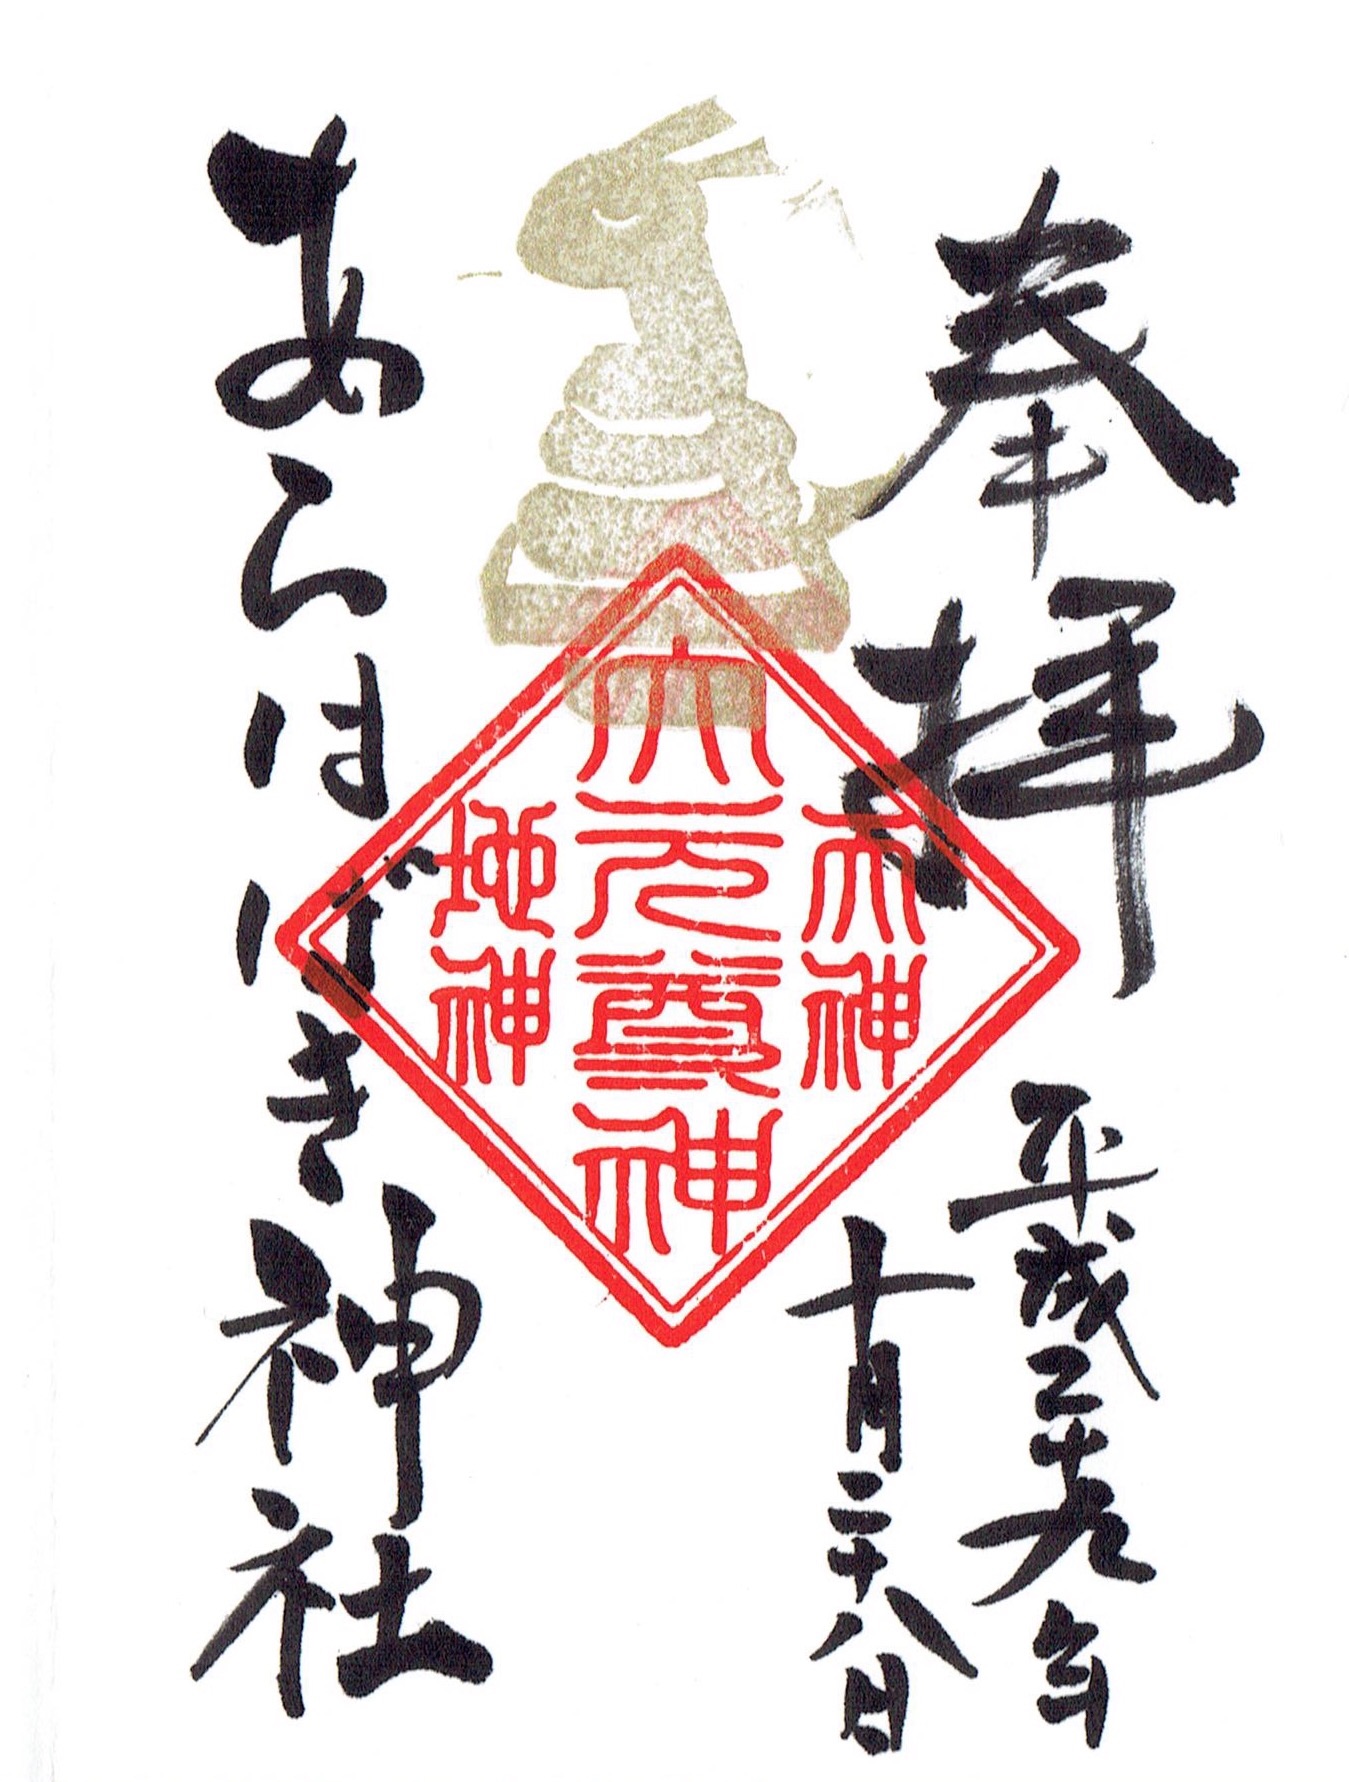 奉拝
平成二十九年
十月二十八日
天神
大元尊神
地神
あらはばき神社